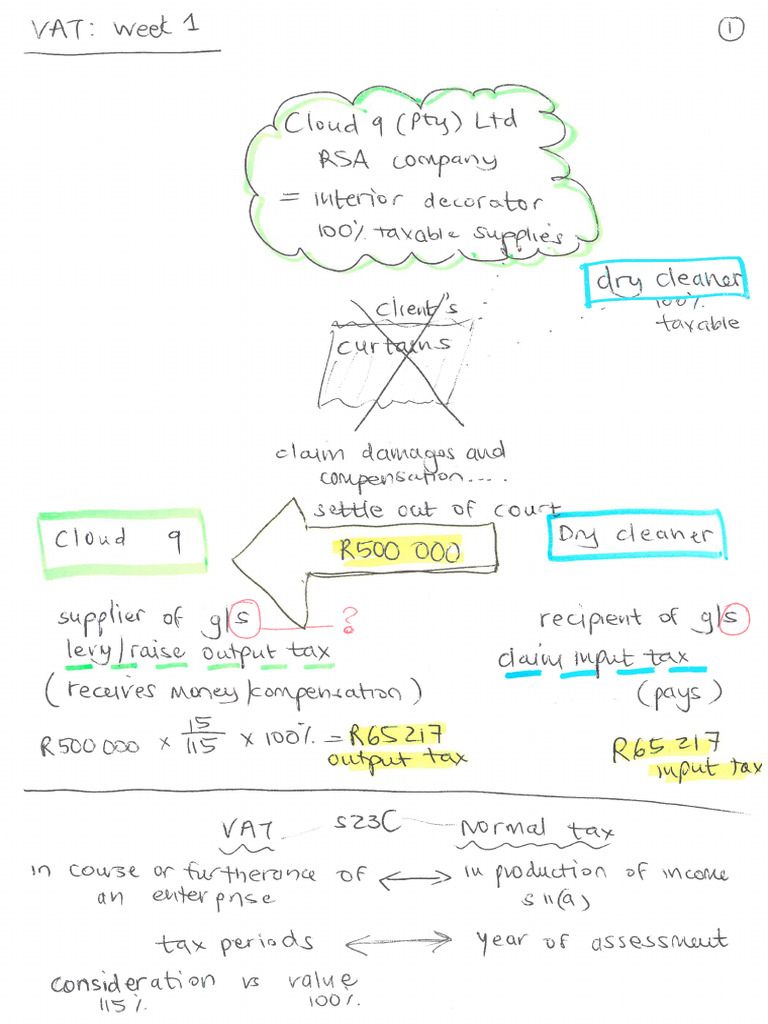 VAT: week 1
1
Cloud 9 (Pty) Ltd
RSA company
= interior decorator
100% taxable supplies
dry cleaner
100%
taxable
client's
curtains
claim damages and
compensation....
settle out of court
Cloud 9
R500 000
Dry cleaner
supplier of g/s ?
levy/raise output tax
(receives money/compensation)
R500 000 × 15/115 × 100% = R65 217
output tax
recipient of g/s
claim input tax
(pays)
R65 217
input tax
VAT s23C Normal tax
in course or furtherance of
an enterprise
in production of income
s11(a)
tax periods
year of assessment
consideration vs value
115% 100%